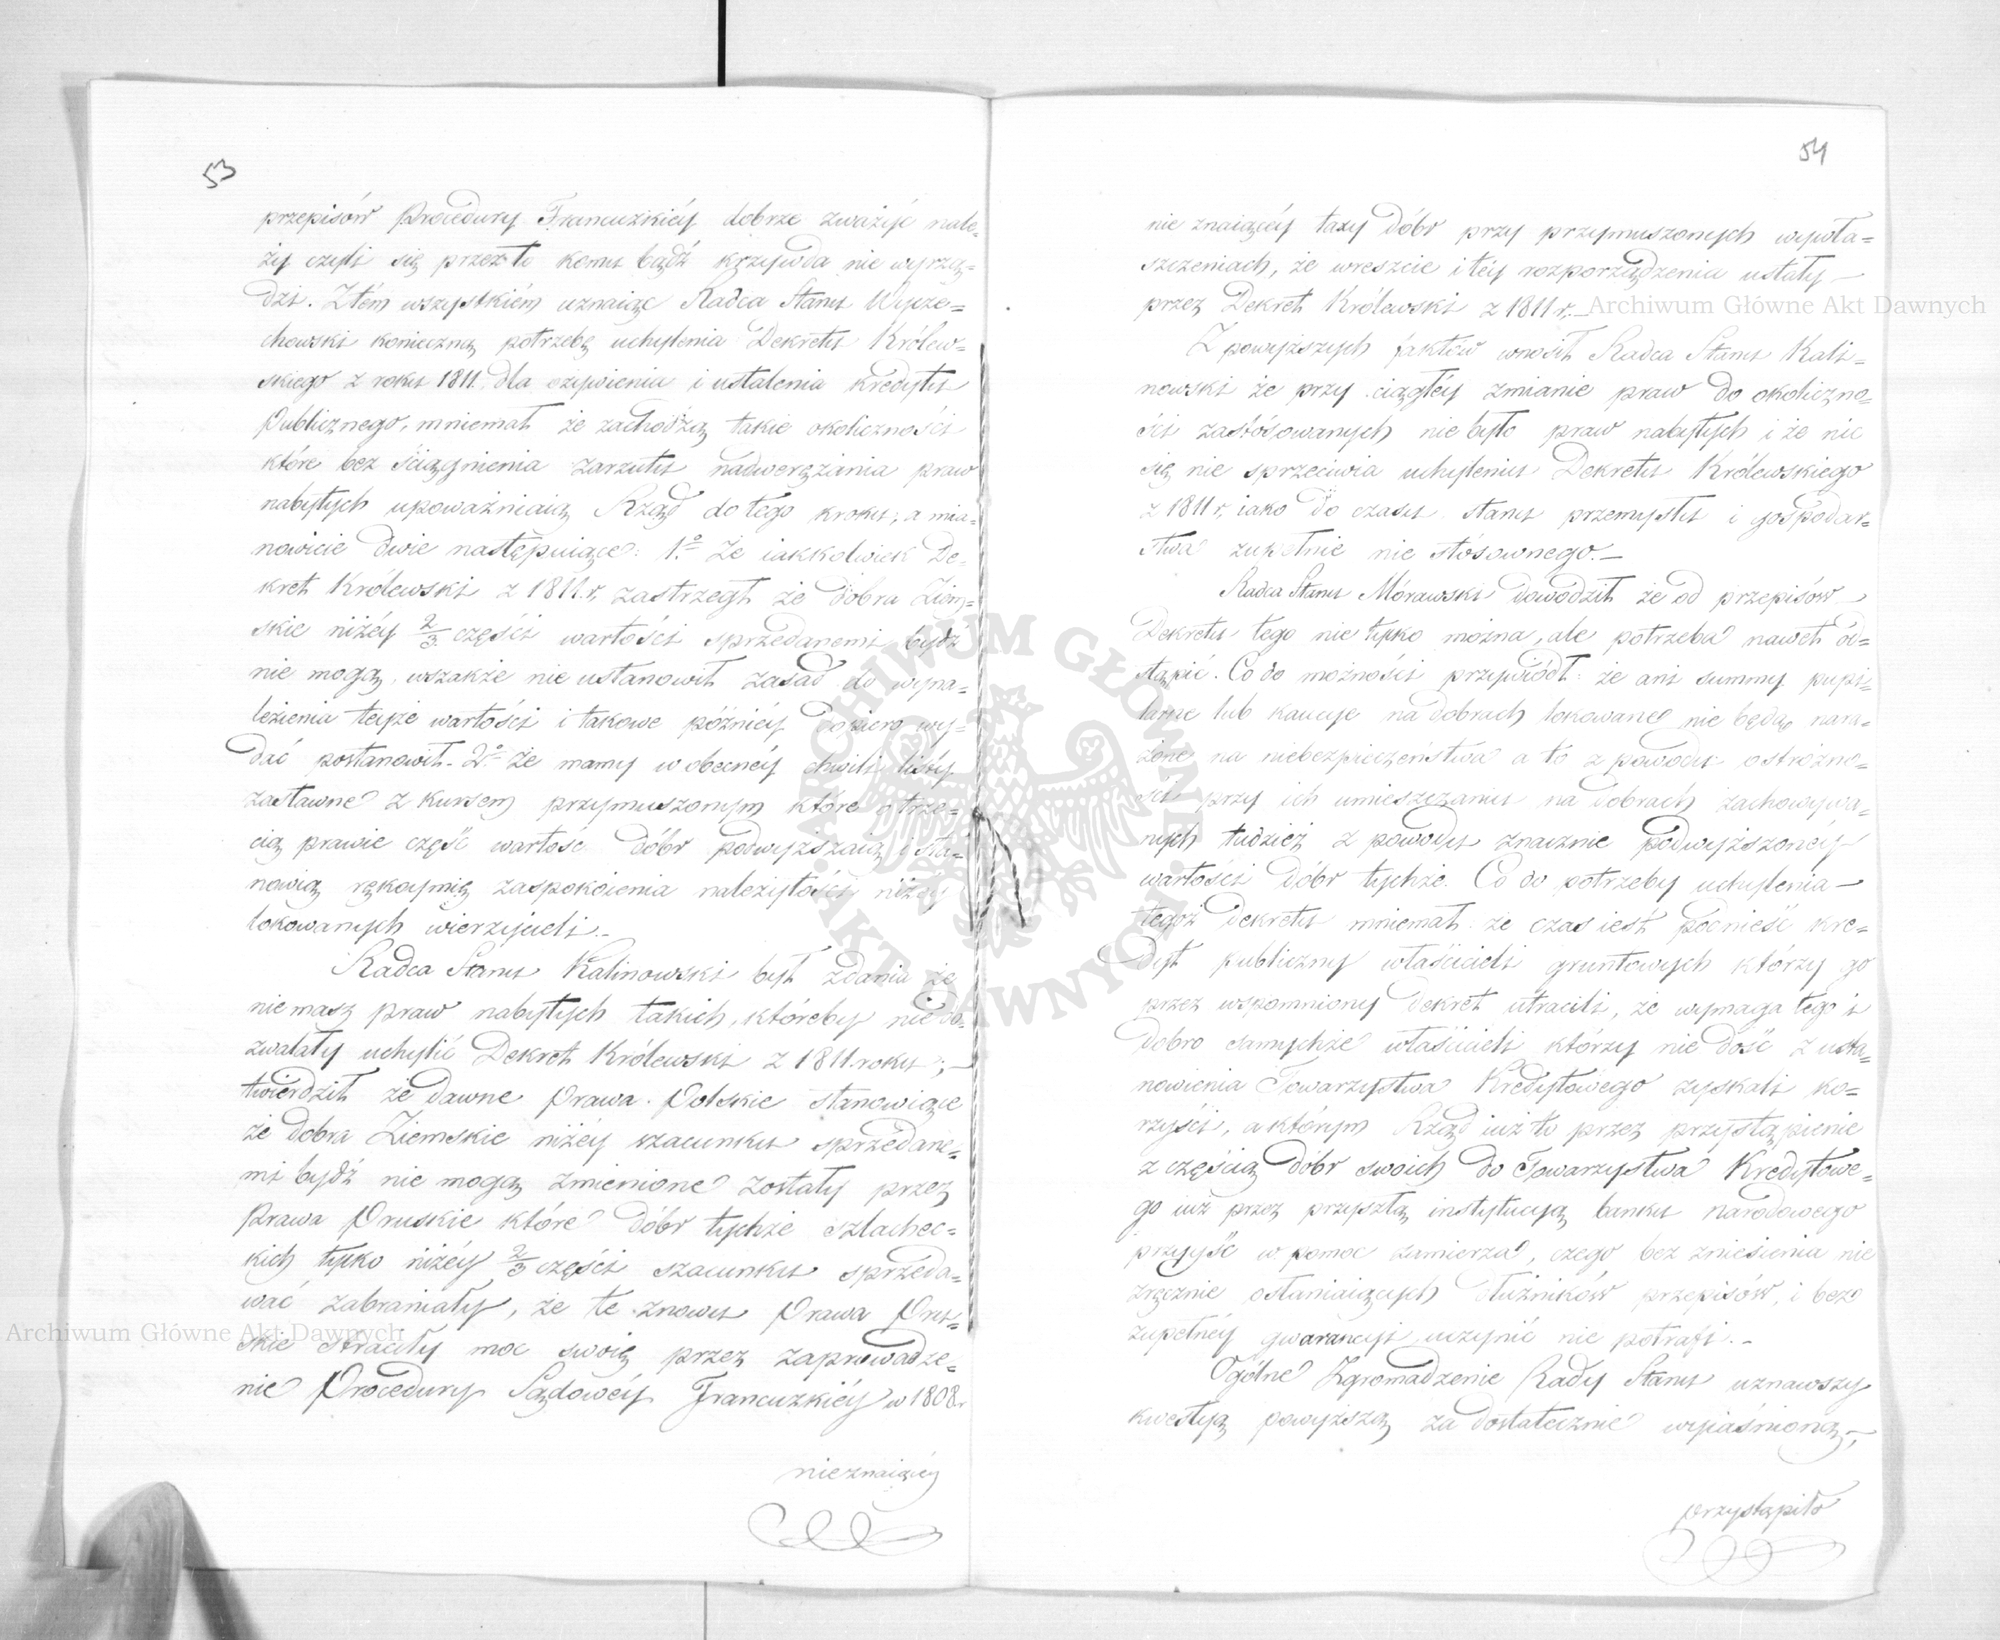 53
przepisów Procedury Francuzkiéy dobrze zważyć nale-
ży czyli się przez to komu bądź krzywda nie wyrzą-
dzi. Ztém wszystkiém uznaiąc Radca Stanu Wycze-
chowski konieczną potrzebę uchylenia Dekretu Królew-
skiego z roku 1811. dla ożywienia i ustalenia kredytu
Publicznego, mniemał że zachodzą takie okoliczności
które bez ściągnienia zarzutu nadwerężania praw
nabytych upoważniaią Rząd do tego kroku; a mia-
nowicie dwie następuiące: 1.º Że iakkolwiek De-
kret Królewski z 1811.r. zastrzegł że dobra Ziem-
skie niżéy 2/3 części wartości sprzedanemi bydź
nie mogą, wszakże nie ustanowił zasad do wyna-
lezienia teyże wartości i takowe późniéy dopiero wy-
dać postanowił. 2.º Że mamy w obecnéy chwili listy
zastawne z kursem przymuszonym które o trze-
cią prawie część wartość dóbr podwyższaią i sta-
nowią rękoymię zaspokoienia należytości niżéy
lokowanych wierzycieli.-
Radca Stanu Kalinowski był zdania że
nie masz praw nabytych takich, któreby nie do-
zwalały uchylić Dekret Królewski z 1811 roku;-
twierdził że dawne Prawa Polskie stanowiące
że dobra Ziemskie niżéy szacunku sprzedane-
mi bydź nie mogą zmienione zostały przez
Prawa Pruskie które dóbr tychże szlachec-
kich tylko niżéy 2/3 części szacunku sprzeda-
wać zabraniały, że te znowu Prawa Pru-
skie straciły moc swoię przez zaprowadze-
nie Procedury Sądowéy Francuzkiéy w 1808.r
nieznaiącéy
54
nie znaiącéy taxy dóbr przy przymuszonych wywła-
szczeniach, że wreszcie i téy rozporządzenia ustały-
przez Dekret Królewski z 1811 r.-
Z powyższych faktów wnosił Radca Stanu Kali-
nowski że przy ciągłéy zmianie praw do okoliczno-
ści zastósowanych nie było praw nabytych i że nic
się nie sprzeciwia uchyleniu Dekretu Królewskiego
z 1811 r, iako do czasu stanu przemysłu i gospodar-
stwa zupełnie nie stósownego.-
Radca Stanu Morawski dowodził że od przepisów-
Dekretu tego nie tylko można, ale potrzeba nawet od-
stąpić. Co do możności przywiódł: że ani summy pupi-
larne lub kaucye na dobrach lokowane nie będą nara-
żone na niebezpieczeństwa a to z powodu ostrożno-
ści przy ich umieszczaniu na dobrach zachowywa-
nych tudzież z powodu znacznie podwyższonéy
wartości dóbr tychże. Co do potrzeby uchylenia-
tegoż Dekretu mniemał że czas iest podnieść kre-
dyt publiczny właścicieli gruntowych którzy go
przez wspomniony Dekret utracili, że wymaga tego i
dobro samychże właścicieli którzy nie dość z usta-
nowienia Towarzystwa Kredytowego zyskali ko-
rzyści, a którym Rząd iuż to przez przystąpienie
z częścią dóbr swoich do Towarzystwa Kredytowe-
go iuż przez przyszłą instytucyą banku narodowego
przyyść w pomoc zamierza, czego bez zniesienia nie
zręcznie osłaniaiących dłużników przepisów, i bez
zupełnéy gwarancyi uczynić nie potrafi.-
Ogólne Zgromadzenie Rady Stanu uznawszy
kwestyą powyższą za dostatecznie wyiaśnioną,-
przystąpiło
Archiwum Główne Akt Dawnych
Archiwum Główne Akt Dawnych
ARCHIWUM GŁÓWNE AKT DAWNYCH